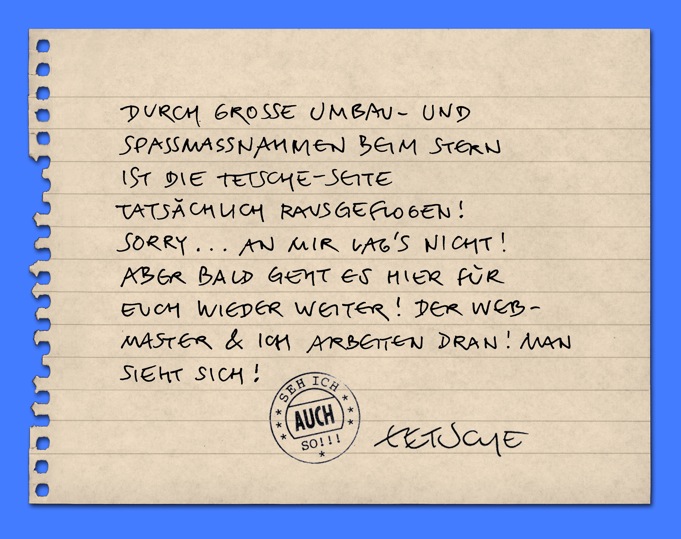 DURCH GROSSE UMBAU- UND
SPASSMASSNAHMEN BEIM STERN
IST DIE TETSCHE-SEITE
TATSÄCHLICH RAUSGEFLOGEN!
SORRY... AN MIR LAG'S NICHT!
ABER BALD GEHT ES HIER FÜR
EUCH WIEDER WEITER! DER WEB-
MASTER & ICH ARBEITEN DRAN! MAN
SIEHT SICH!
SEH ICH
AUCH
SO!!!
TETSCHE